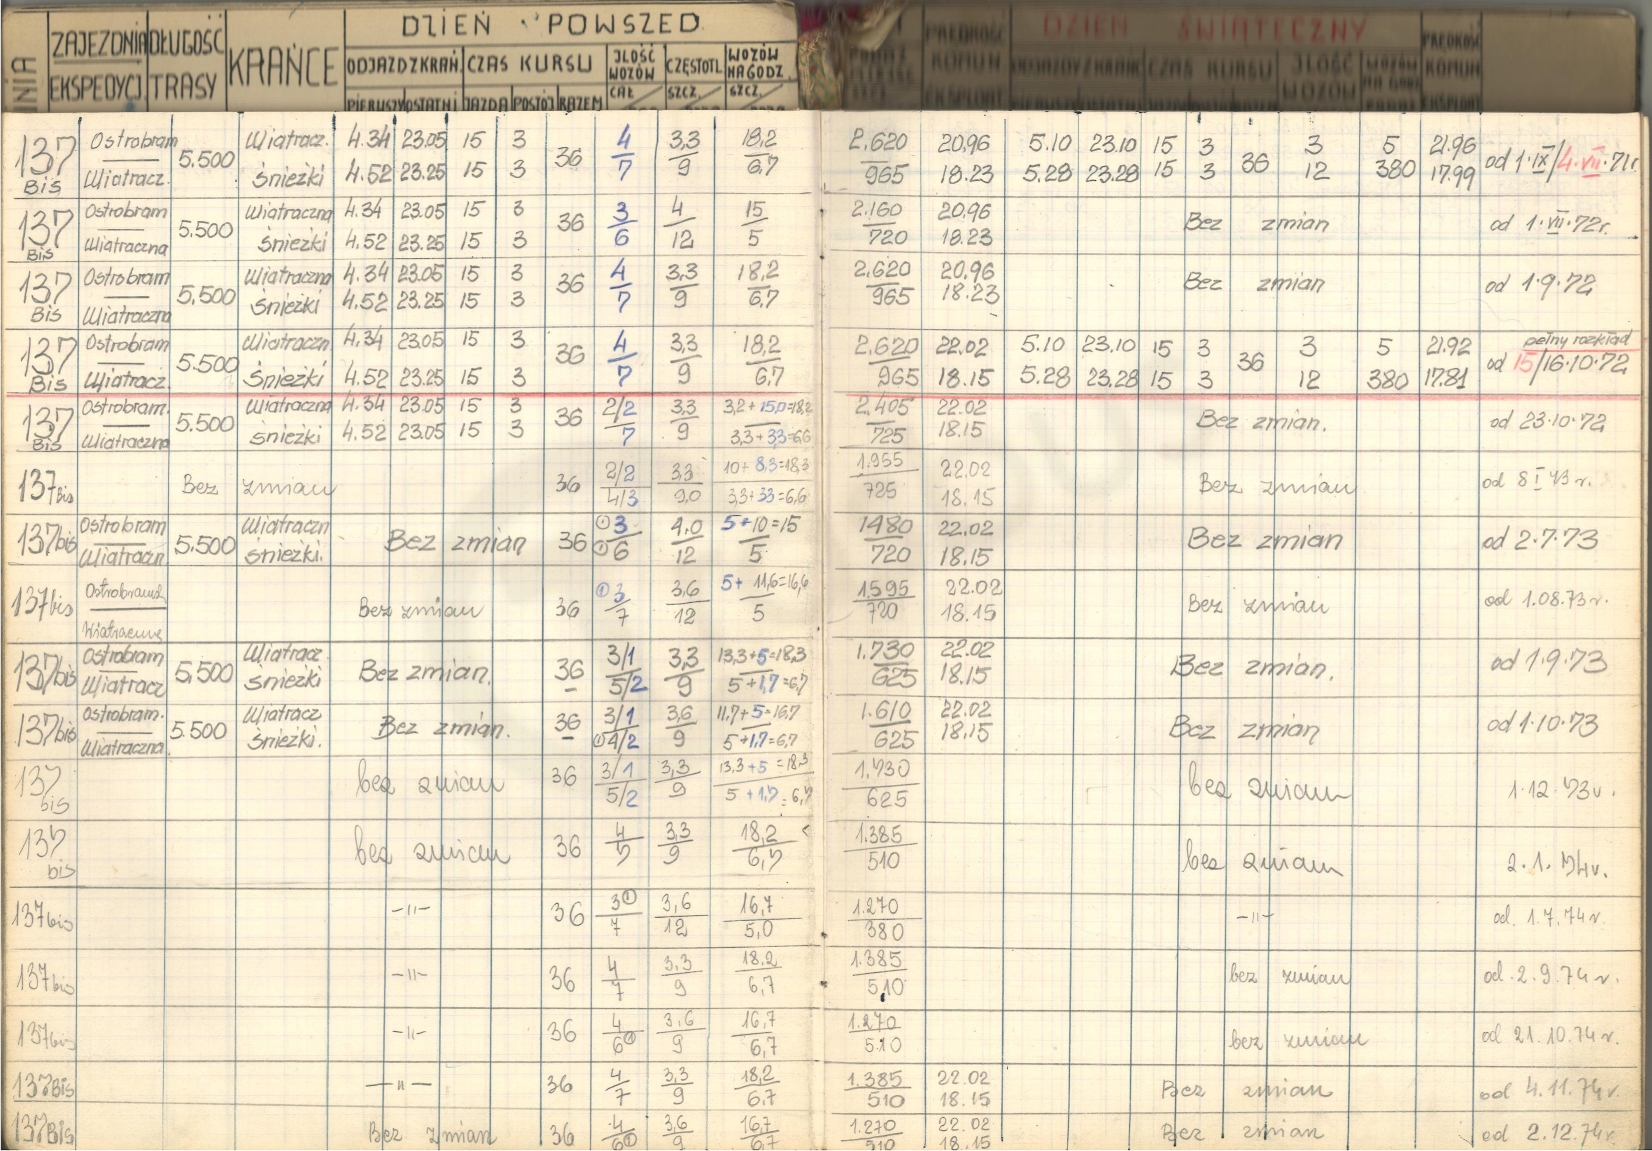 LINIA ZAJEZDNIA EKSPEDYCJ. DŁUGOŚĆ TRASY KRAŃCE DZIEŃ POWSZED. DZIEŃ ŚWIĄTECZNY
ODJAZD Z KRAŃ. CZAS KURSU ILOŚĆ WOZÓW CZĘSTOTL. WOZÓW NA GODZ. PRĘDKOŚĆ KOMUN EKSPLOAT ODJAZDY Z KRAŃC CZAS KURSU ILOŚĆ WOZÓW WOZÓW NA GODZ PRĘDKOŚ KOMUN EKSPLOAT
PIERWSZY OSTATNI JAZDA POSTÓJ RAZEM CAŁ SZCZ. SZCZ.
137 Ostrobram Wiatracz. 4.34 23.05 15 3 4 3,3 18,2 2.620 20,96 5.10 23.10 15 3 3 5 21.96
5.500 36 36 od 1·IX/4·VII·71r.
Bis Wiatracz. Śnieżki 4.52 23.25 15 3 7 9 6,7 965 18.23 5.28 23.28 15 3 12 380 17.99
137 Ostrobram Wiatraczna 4.34 23.05 15 3 3 4 15 2.160 20,96
5.500 36 Bez zmian od 1·VII·72r.
Bis Wiatraczna Śnieżki 4.52 23.25 15 3 6 12 5 720 18.23
137 Ostrobram Wiatraczna 4.34 23.05 15 3 4 3,3 18,2 2.620 20,96
5,500 36 Bez zmian od 1·9·72
Bis Wiatraczna Śnieżki 4.52 23.25 15 3 7 9 6,7 965 18.23
137 Ostrobram Wiatraczn 4.34 23.05 15 3 4 3,3 18,2 2.620 22.02 5.10 23.10 15 3 3 5 21.92 pełny rozkład
5.500 36 36 od 15/16·10·72
Bis Wiatracz. Śnieżki 4.52 23.25 15 3 7 9 6,7 965 18.15 5.28 23.28 15 3 12 380 17.81
137 Ostrobram. Wiatraczna 4.34 23.05 15 3 2/2 3,3 3,2+15,0=18,2 2.405 22.02
5.500 36 Bez zmian. od 23·10·72
Bis Wiatraczna Śnieżki 4.52 23.05 15 3 7 9 3,3+33=6,6 725 18.15
2/2 3,3 10+8,3=18,3 1.955 22.02
137bis Bez zmian 36 Bez zmian od 8 I 73 r.
4/3 9,0 3,3+33=6,6 725 18.15
Ostrobram Wiatraczn ①3 4,0 5+10=15 1480 22.02
137bis 5.500 Bez zmian 36 Bez zmian od 2·7·73
Wiatraczn. Śnieżki. ①6 12 5 720 18.15
①3 3,6 5+11,6=16,6 1.595 22.02
137bis Bez zmian 36 Bez zmian od 1.08.73r.
7 12 5 720 18.15
Ostrobram Wiatracz 3/1 3,3 13,3+5=18,3 1.730 22.02
137bis 5,500 Bez zmian. 36 Bez zmian. od 1·9·73
Wiatracz Śnieżki 5/2 9 5+1,7=6,7 625 18.15
Ostrobram. Wiatracz 3/1 3,6 11,7+5=16,7 1.610 22.02
137bis 5.500 Bez zmian. 36 Bez zmian od 1·10·73
Wiatraczna. Śnieżki. ①4/2 9 5+1,7=6,7 625 18,15
137 3/1 3,3 13,3+5=18,3 1,730
bez zmian 36 bez zmian 1·12·73r.
bis 5/2 9 5+1,7=6,7 625
137 4 3,3 18,2 1.385
bez zmian 36 bez zmian 2.1.74r.
bis 7 9 6,7 510
3① 3,6 16,7 1.270
137bis -"- 36 -"- od. 1.7.74r.
7 12 5,0 380
4 3,3 18,2 1.385
137bis -"- 36 bez zmian od.2.9.74r.
7 9 6,7 510
4 3,6 16,7 1.270
137bis -"- 36 bez zmian od 21.10.74r.
6① 9 6,7 510
4 3,3 18,2 1.385 22.02
137Bis -"- 36 Bez zmian od 4.11.74r.
7 9 6.7 510 18.15
4 3,6 16,7 1.270 22.02
137Bis Bez zmian 36 Bez zmian od 2.12.74r.
6① 9 6,7 510 18.15